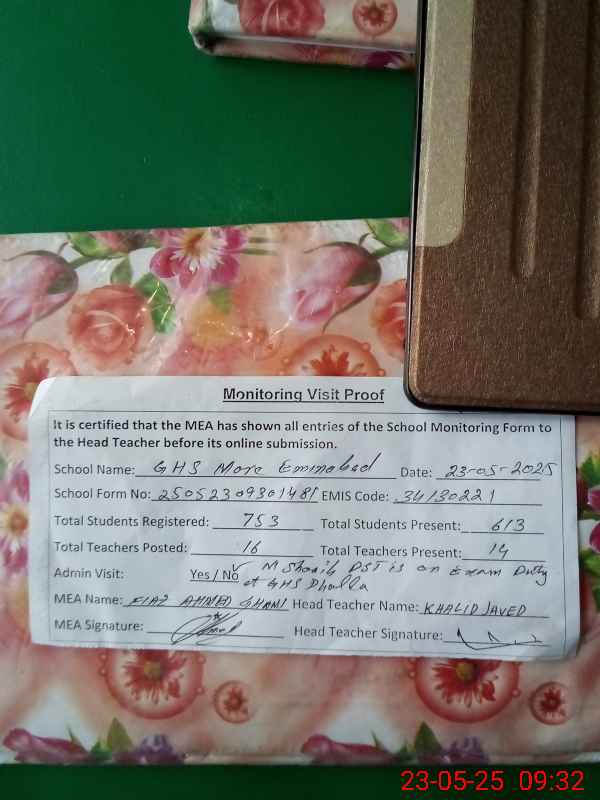 Monitoring Visit Proof
It is certified that the MEA has shown all entries of the School Monitoring Form to
the Head Teacher before its online submission.
School Name: GHS More Eminabad Date: 23-05-2025
School Form No: 25052309301481 EMIS Code: 34130221
Total Students Registered: 753 Total Students Present: 613
Total Teachers Posted: 16 Total Teachers Present: 14
Admin Visit: Yes / No ✓ M Shoaib PST is on Exam Duty
at GHS Dhulla
MEA Name: FIAZ AHMED GHANI Head Teacher Name: KHALID JAVED
MEA Signature: Head Teacher Signature:
23-05-25 09:32